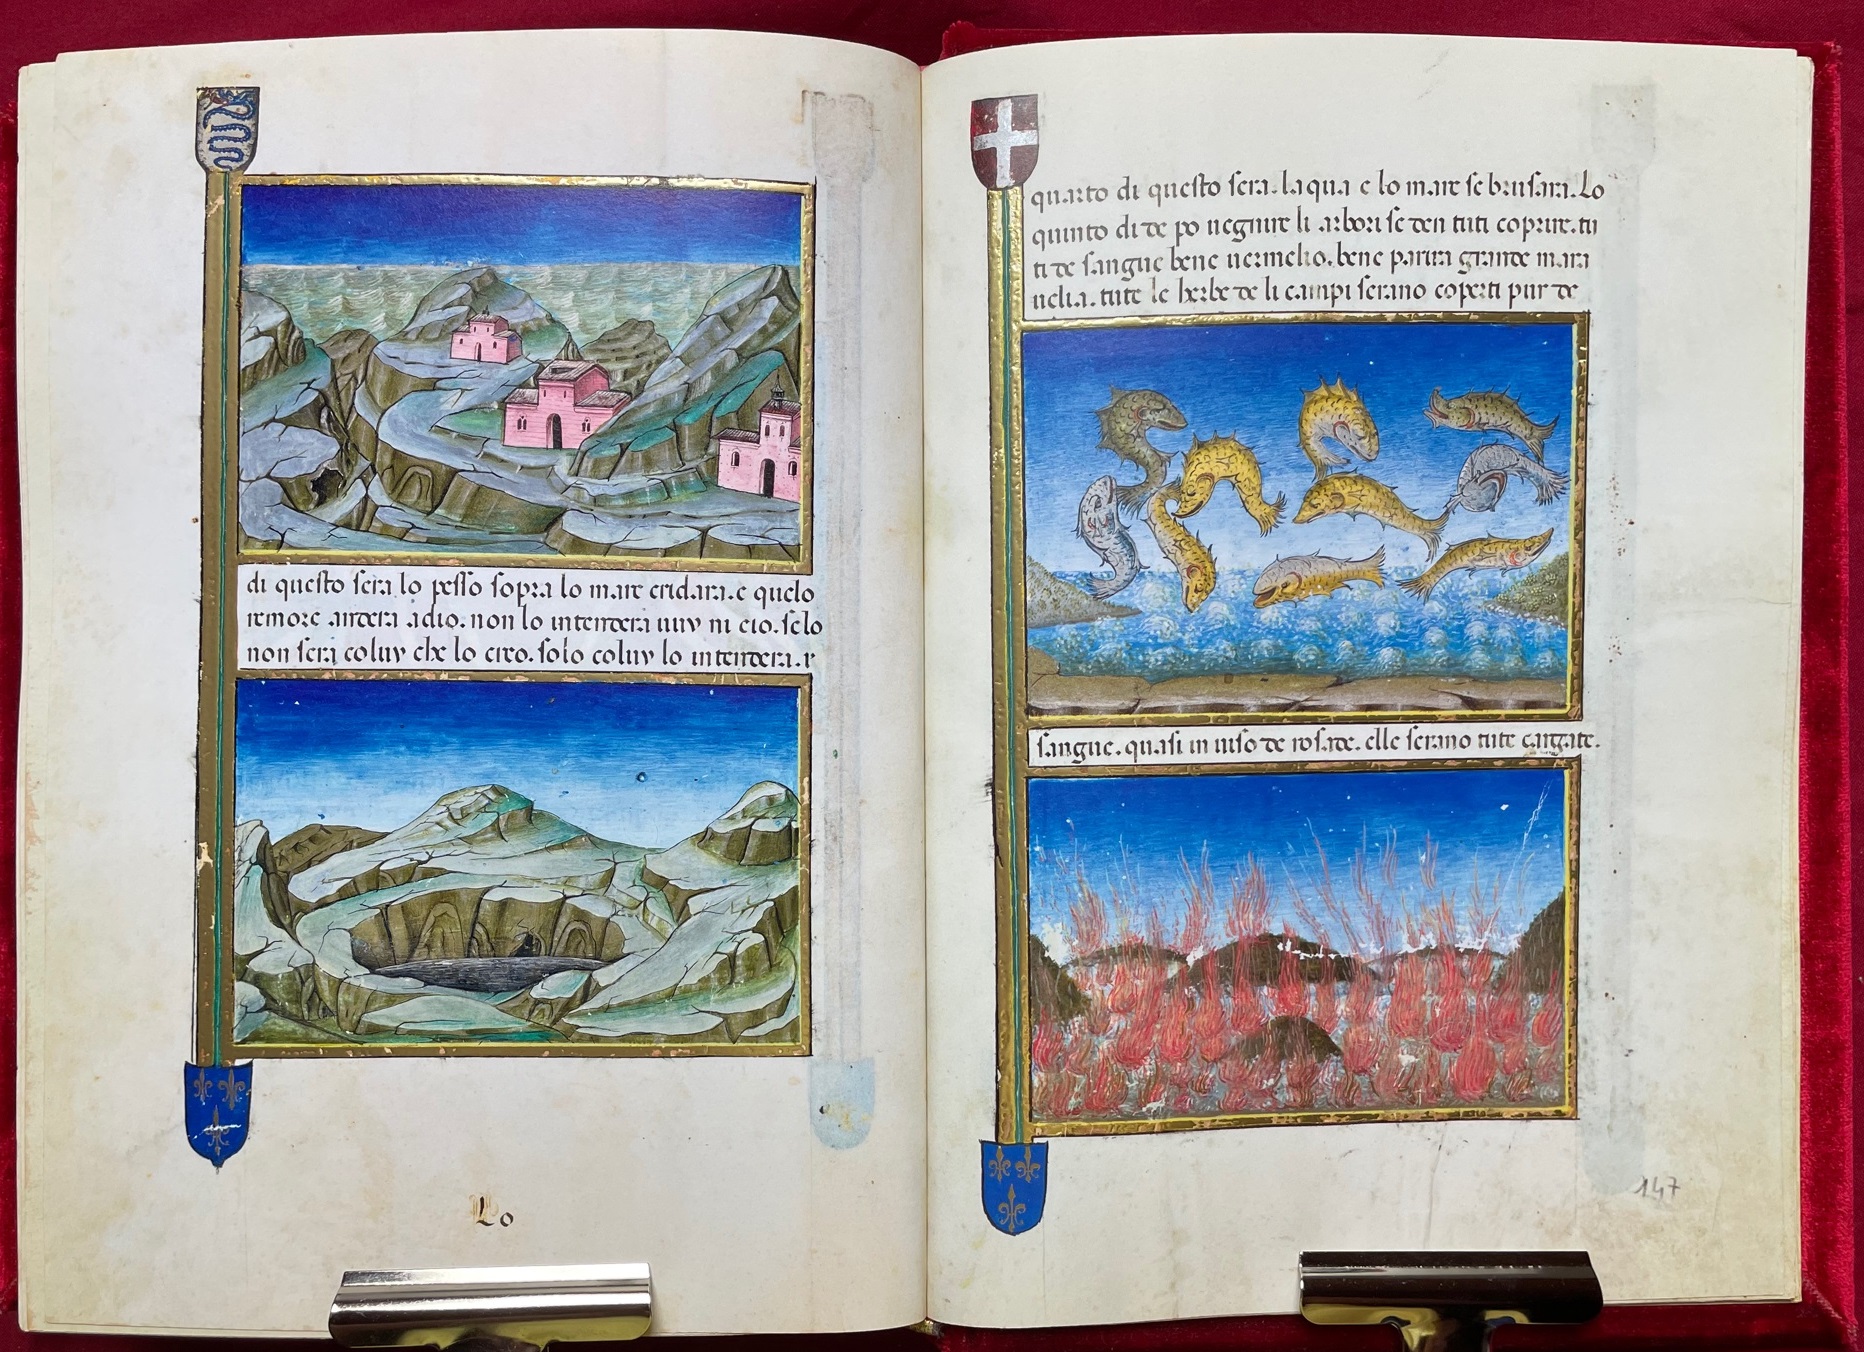 di questo sera lo pesso sopra lo mare cridara. e quelo
remore andera a dio. non lo intendera nuy ni cio. selo
non sera coluy che lo creo. solo coluy lo intendera. r
Lo
quarto di questo sera. laqua e lo mare se brusara. Lo
quinto di de po uegnire li arbori se den tuti coprire. tu
ti de sangue bene uermelio. bene parira grande mara
uelia. tute le herbe de li campi serano coperti pur de
sangue. quasi in uiso de rosade. elle serano tute cargate.
147